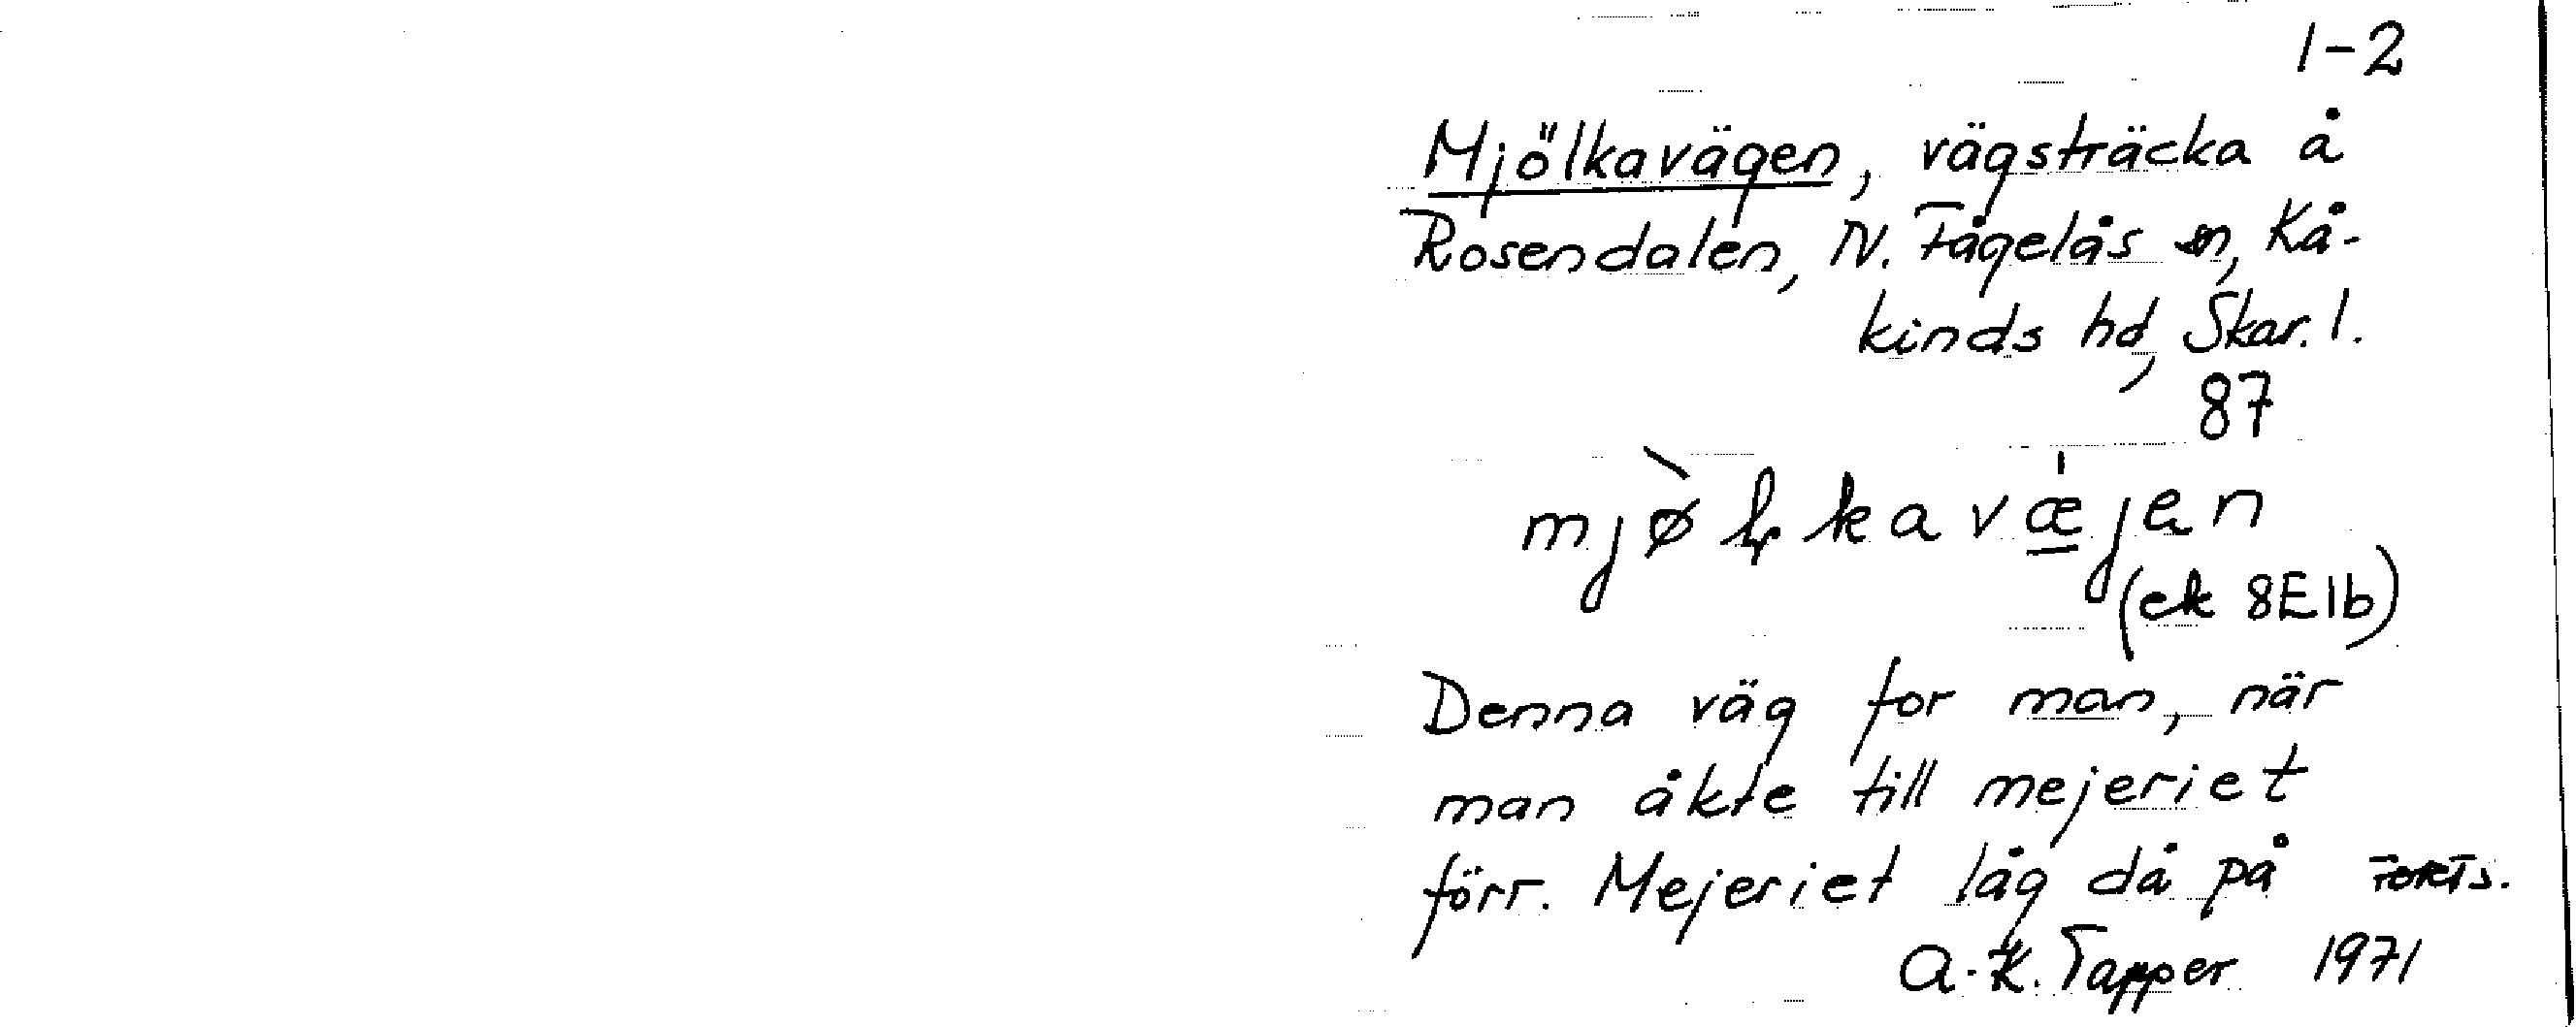 1-2
Mjölkavägen, vägsträcka å
Rosendalen, N. Fågelås sn, Kå-
kinds hd, Skar. l.
87
(ek 8E1b)
Denna väg for man, när
man åkte till mejeriet
förr. Mejeriet låg då på Forts.
A.-K. Tapper 1971